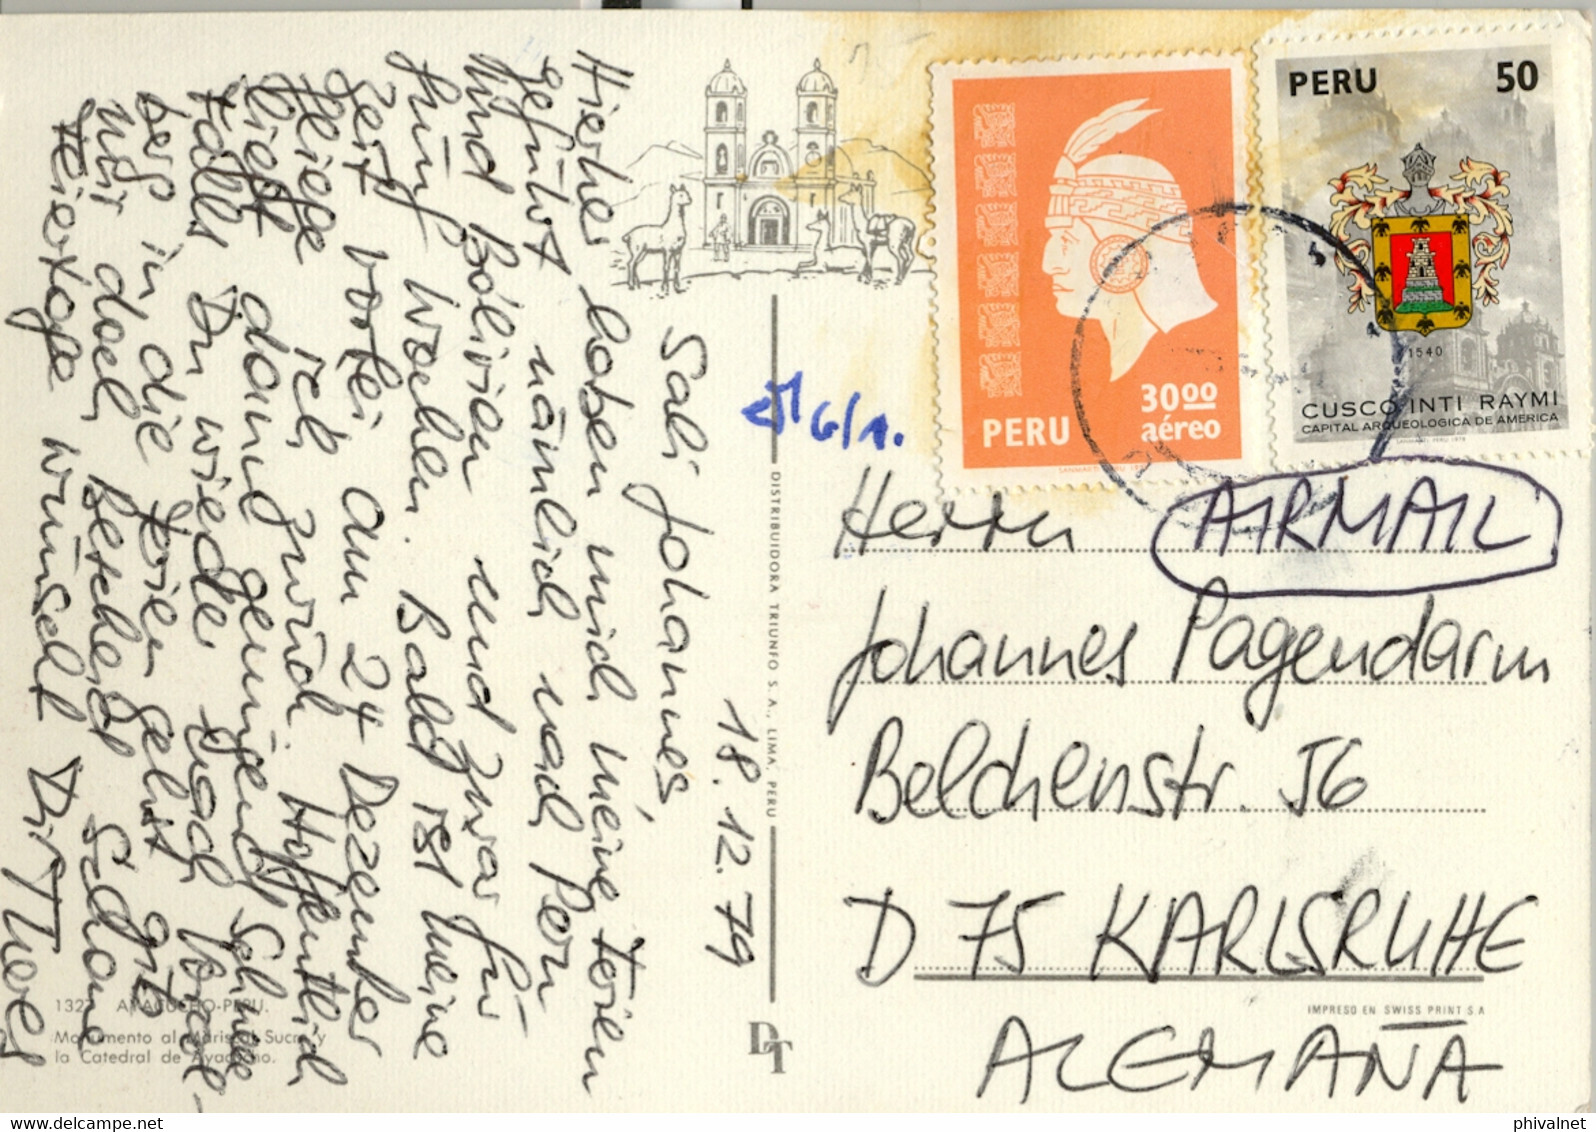 PERU
30⁰⁰
aéreo
SANMARTI-PERU
PERU 50
1540
CUSCO INTI RAYMI
CAPITAL ARQUEOLOGICA DE AMERICA
6/1.
AIRMAIL
Herrn
Johannes Pagendarm
Belchenstr. 56
D 75 KARLSRUHE
ALEMAÑA
IMPRESO EN SWISS PRINT S A
DISTRIBUIDORA TRIUNFO S. A., LIMA, PERU
DT
18.12.79
Sali Johannes
Hierher haben mich meine Ferien
geführt nämlich nach Peru
und Bolivien und zwar für
fünf Wochen. Bald ist meine
Zeit vorbei am 24 Dezember
fliege ich zurück. Hoffentlich
liegt dann genügend Schnee
Falls Du wieder nach
in die Ferien gehst gib
mir doch Bescheid Schöne
Feiertage wünscht Dir
1327 AYACUCHO-PERU.
Monumento al Mariscal Sucre y
la Catedral de Ayacucho.
phivalnet